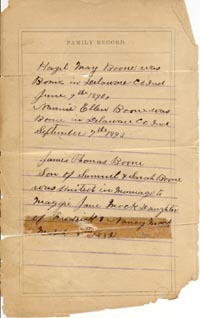 FAMILY RECORD
Hazel May Boone was
Borne in Delaware Co Ind
June 9th 1890,
Nannie Ellen Boone was
Borne in Delaware Co Ind
September 7th 1893
James Thomas Boone
Son of Samuel & Sarah Boone
was United in Marriage to
Maggie Jane Mock Daughter
of & Nancy Mock
March